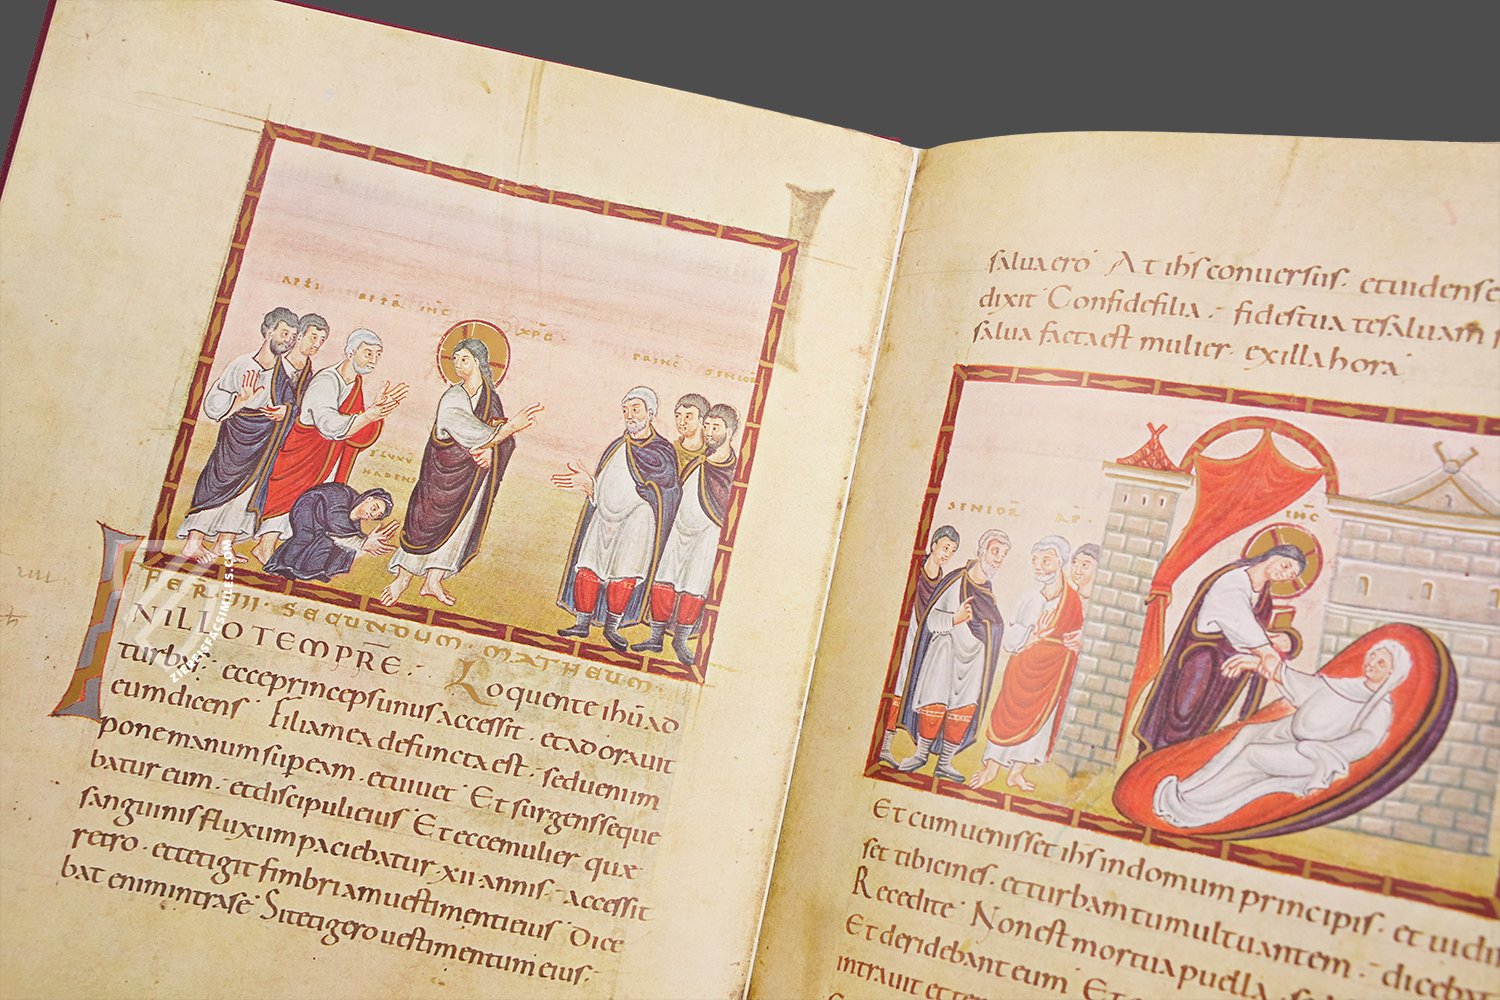 APŁI
PETR̄
IH̄C
XP̄C
PRINC̄
SENIOR
FLUXŪ
HABENS
FER III SECUNDUM MATHEUM
IN ILLO TEMPR̄E. Loquente ihū ad
turbas ecce princeps unus accessit. et adorauit
eum dicens Filia mea defuncta est. sed ueni im
pone manum sup eam. et uiuet Et surgens seque
batur eum. et discipuli eius Et ecce mulier quæ
sanguinis fluxum paciebatur xii annis. accessit
retro. et tetigit fimbriam uestimenti eius Dice
bat enim intra se Si tetigero uestimentum eius.
salua ero At ihs conuersus. et uidens e
dixit Confide filia. fides tua te saluam
salua facta est mulier. ex illa hora
SENIOR̄
AP.
IH̄C
Et cum uenisset ihs in domum principis. et uidi
set tibicines. et turbam tumultuantem. dicebat
Recedite Non est mortua puella.
Et deridebant eum Et
intrauit et te
ZIEREIS FACSIMILES.COM